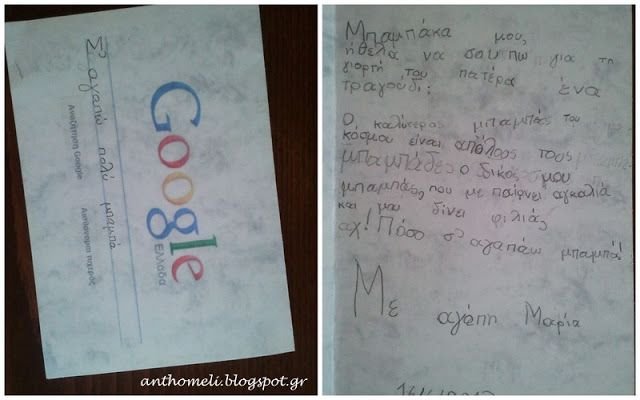 Google
Ελλάδα
Σ' αγαπώ πολύ μπαμπα
Αναζήτηση Google
Αισθάνομαι τυχερός
anthomeli.blogspot.gr
Μπαμπάκα μου,
ήθελα να σου πω για τη
γιορτή του πατέρα ένα
τραγούδι:
Ο καλύτερος μπαμπάς του
κόσμου είναι απ' όλους τους
μπαμπάδες ο δικός μου
μπαμπάς που με παίρνει αγκαλιά
και μου δίνει φιλιάς
αχ! Πόσο σ' αγαπάω μπαμπάς!
Με αγάπη Μαρία